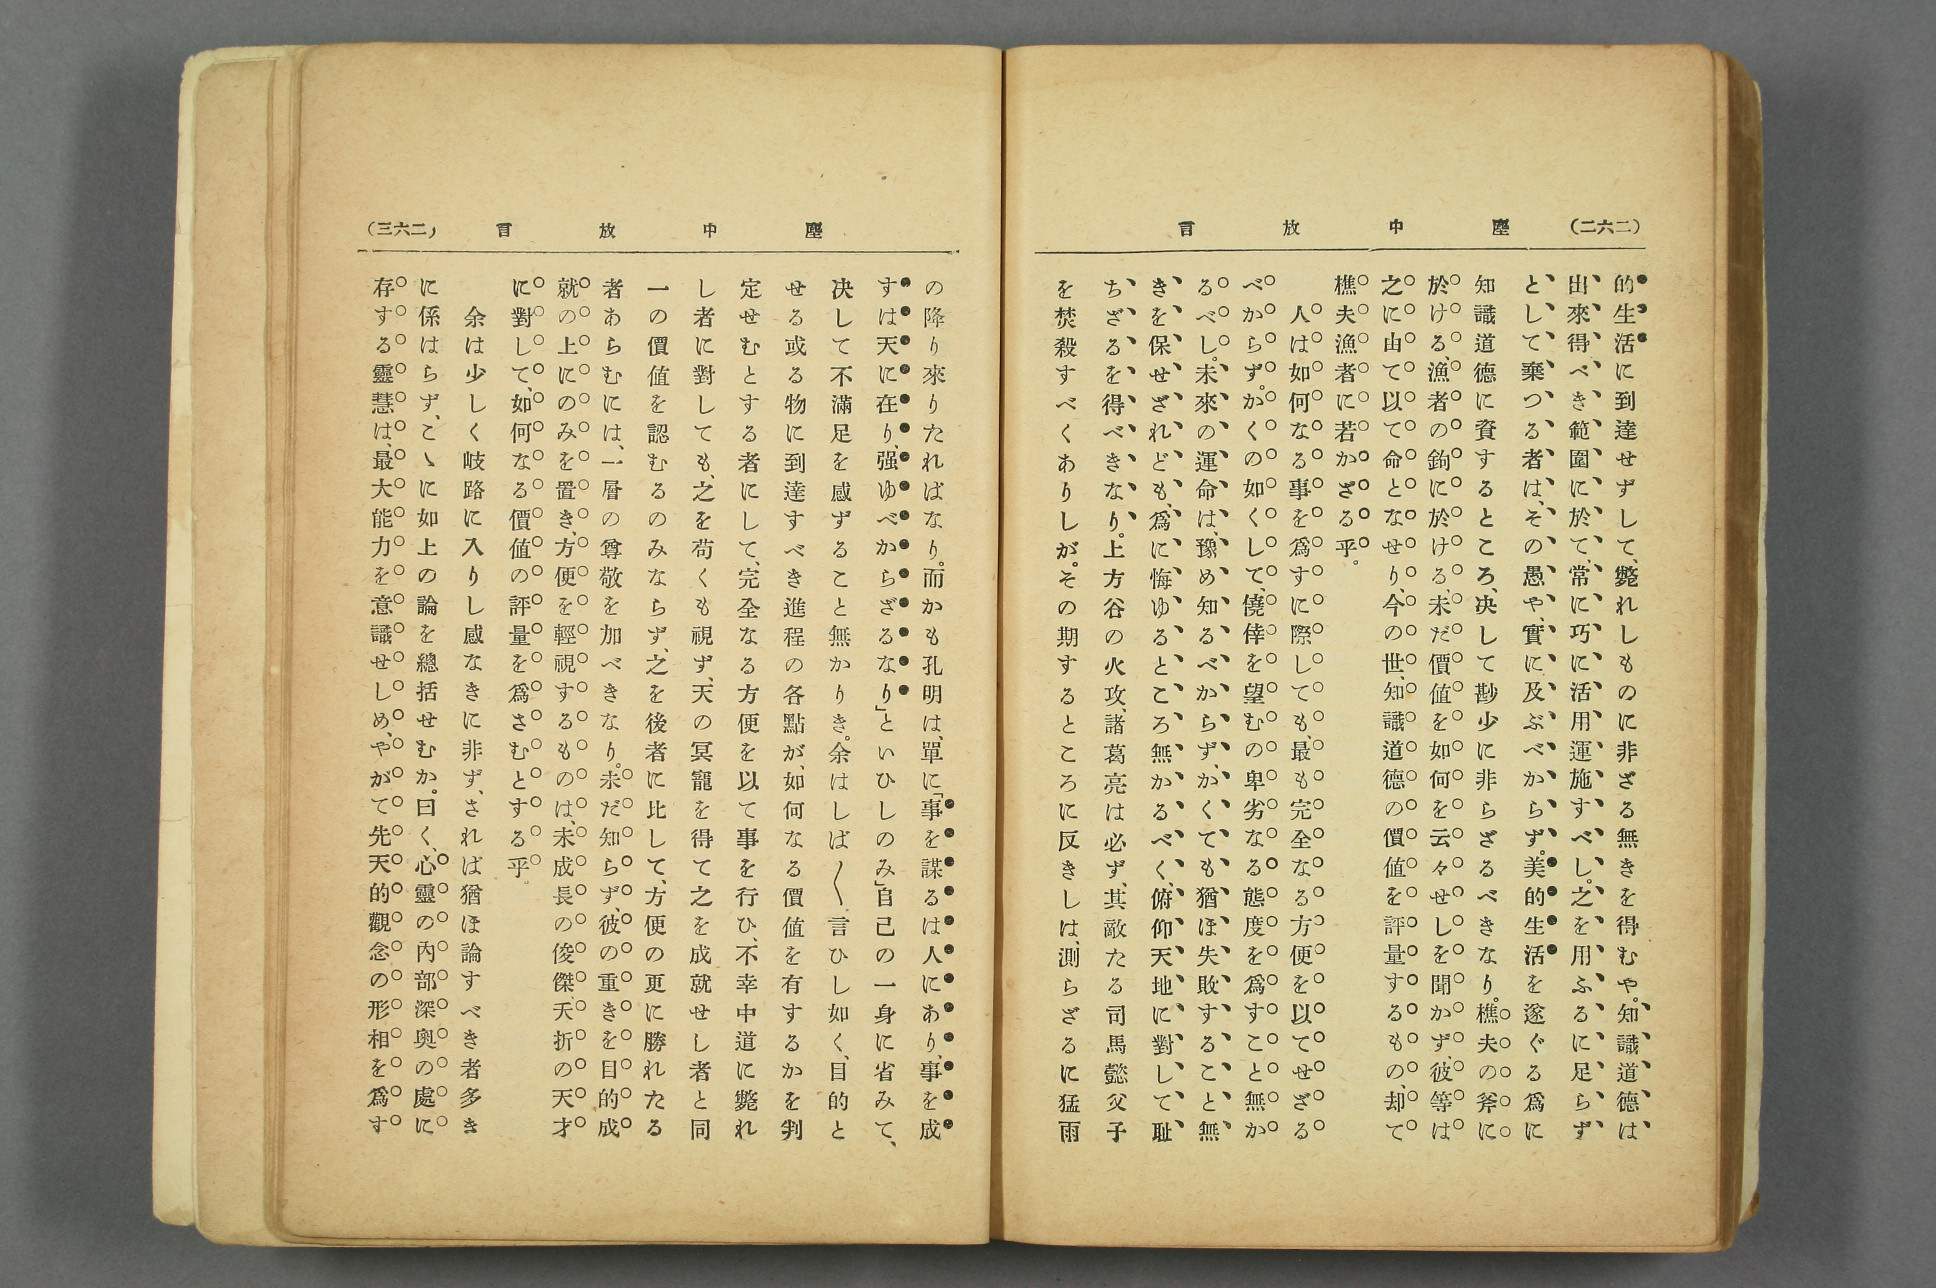 (二六二)　塵中放言
的生活に到達せずして、斃れしものに非ざる無きを得むや。知識道德は
出來得べき範圍に於て、常に巧に活用運施すべし。之を用ふるに足らず
として棄つる者は、その愚や、實に及ぶべからず。美的生活を遂ぐる爲に
知識道德に資するところ、决して尠少に非らざるべきなり。樵夫の斧に
於ける、漁者の鉤に於ける、未だ價値を如何を云々せしを聞かず、彼等は
之に由て以て命となせり、今の世、知識道德の價値を評量するもの、却て
樵夫漁者に若かざる乎。
人は如何なる事を爲すに際しても、最も完全なる方便を以てせざる
べからず。かくの如くして、僥倖を望むの卑劣なる態度を爲すこと無か
るべし。未來の運命は、豫め知るべからず、かくても猶ほ失敗すること無
きを保せざれども、爲に悔ゆるところ無かるべく、俯仰天地に對して耻
ちざるを得べきなり。上方谷の火攻、諸葛亮は必ず、其敵たる司馬懿父子
を焚殺すべくありしが。その期するところに反きしは、測らざるに猛雨
塵中放言　(二六三)
の降り來りたればなり。而かも孔明は、單に「事を謀るは人にあり、事を成
すは天に在り、强ゆべからざるなり」といひしのみ」自己の一身に省みて、
决して不滿足を感ずること無かりき。余はしば〱、言ひし如く、目的と
せる或る物に到達すべき進程の各點が、如何なる價値を有するかを判
定せむとする者にして、完全なる方便を以て事を行ひ、不幸中道に斃れ
し者に對しても、之を苟くも視ず、天の冥寵を得て之を成就せし者と同
一の價値を認むるのみならず、之を後者に比して、方便の更に勝れたる
者あらむには、一層の尊敬を加べきなり。未だ知らず、彼の重きを目的成
就の上にのみを置き、方便を輕視するものは、未成長の俊傑、夭折の天才
に對して、如何なる價値の評量を爲さむとする乎。
余は少しく岐路に入りし感なきに非ず、されば猶ほ論すべき者多き
に係はらず、こゝに如上の論を總括せむか。曰く、心靈の內部深奧の處に
存する靈慧は、最大能力を意識せしめ、やがて先天的觀念の形相を爲す